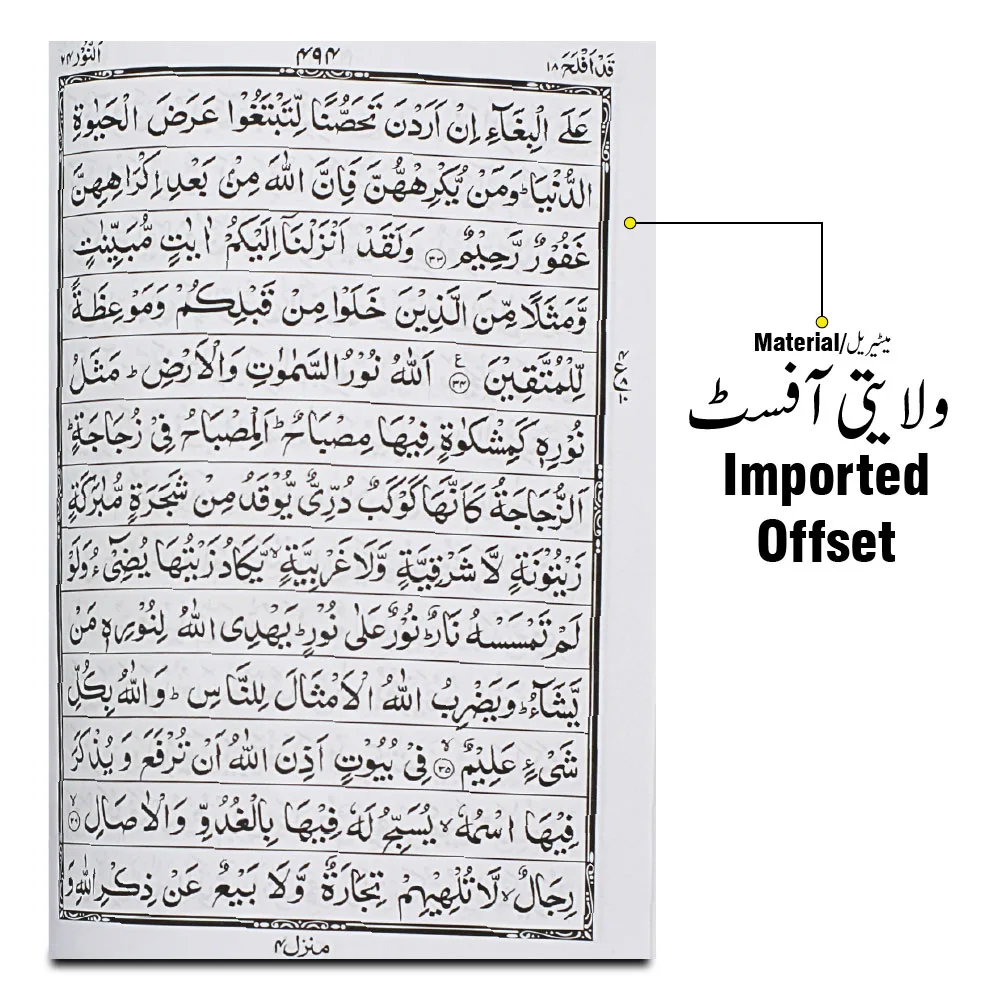 قَدۡ اَفۡلَحَ ۱۸
۴۹۴
اَلنُّوۡر ۲۴
عَلَى الۡبِغَآءِ اِنۡ اَرَدۡنَ تَحَصُّنًا لِّتَبۡتَغُوۡا عَرَضَ الۡحَيٰوةِ
الدُّنۡيَا ؕ وَمَنۡ يُّكۡرِهۡهُّنَّ فَاِنَّ اللّٰهَ مِنۡۢ بَعۡدِ اِكۡرَاهِهِنَّ
غَفُوۡرٌ رَّحِيۡمٌ ﴿۳۳﴾ وَلَقَدۡ اَنۡزَلۡنَاۤ اِلَيۡكُمۡ اٰيٰتٍ مُّبَيِّنٰتٍ
وَّمَثَلًا مِّنَ الَّذِيۡنَ خَلَوۡا مِنۡ قَبۡلِكُمۡ وَمَوۡعِظَةً
لِّلۡمُتَّقِيۡنَ ﴿۳۴﴾ ع اَللّٰهُ نُوۡرُ السَّمٰوٰتِ وَالۡاَرۡضِ ؕ مَثَلُ
نُوۡرِهٖ كَمِشۡكٰوةٍ فِيۡهَا مِصۡبَاحٌ ؕ اَلۡمِصۡبَاحُ فِىۡ زُجَاجَةٍ ؕ
اَلزُّجَاجَةُ كَاَنَّهَا كَوۡكَبٌ دُرِّىٌّ يُّوۡقَدُ مِنۡ شَجَرَةٍ مُّبٰرَكَةٍ
زَيۡتُوۡنَةٍ لَّا شَرۡقِيَّةٍ وَّلَا غَرۡبِيَّةٍ ۙ يَّكَادُ زَيۡتُهَا يُضِىۡٓءُ وَلَوۡ
لَمۡ تَمۡسَسۡهُ نَارٌ ؕ نُوۡرٌ عَلٰى نُوۡرٍ ؕ يَهۡدِى اللّٰهُ لِنُوۡرِهٖ مَنۡ
يَّشَآءُ ؕ وَيَضۡرِبُ اللّٰهُ الۡاَمۡثَالَ لِلنَّاسِ ؕ وَاللّٰهُ بِكُلِّ
شَىۡءٍ عَلِيۡمٌ ۙ ﴿۳۵﴾ فِىۡ بُيُوۡتٍ اَذِنَ اللّٰهُ اَنۡ تُرۡفَعَ وَيُذۡكَرَ
فِيۡهَا اسۡمُهٗ ۙ يُسَبِّحُ لَهٗ فِيۡهَا بِالۡغُدُوِّ وَالۡاٰصَالِ ۙ ﴿۳۶﴾
رِجَالٌ ۙ لَّا تُلۡهِيۡهِمۡ تِجَارَةٌ وَّلَا بَيۡعٌ عَنۡ ذِكۡرِ اللّٰهِ وَ
منزل ۴
Material/میٹیریل
ولایتی آفسٹ
Imported
Offset